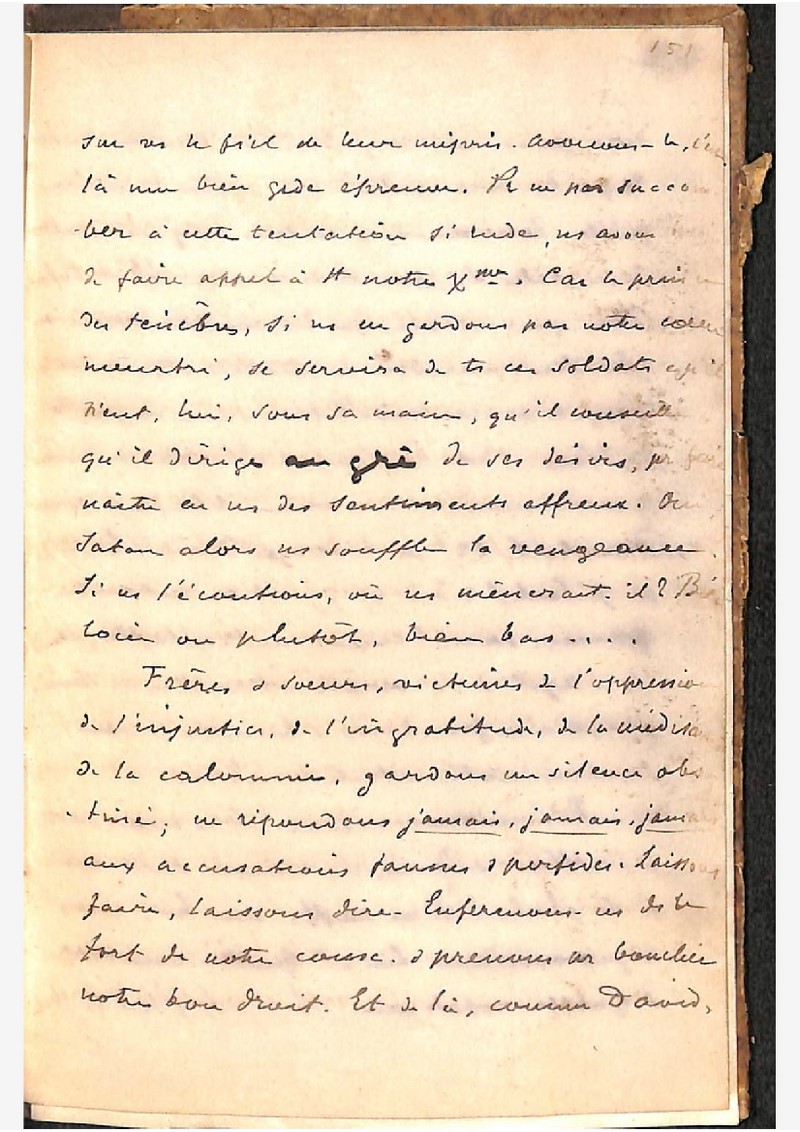 151
sur ns le fiel de leur mépris. Avouons-le, c'est
là une bien gde épreuve. Pr ne pas succom
ber à cette tentation si rude, ns avons
de faire appel à tt notre Xme. Car le prince
des tenèbres, si ns ne gardons pas notre coeur
meurtri, se servira de ts ces soldats qu'il
tient, lui, sous sa main, qu'il conseille
qu'il dirige au gré de ses désirs, pr faire
naître en ns des sentiments affreux. Oui,
Satan alors ns souffle la vengeance.
Si ns l'écoutions, où ns mènerait-il? Bien
loin ou plutôt, bien bas....
Frères & soeurs, victimes de l'oppression
de l'injustice, de l'ingratitude, de la médisa
de la calomnie, gardons un silence obs
tiné; ne répondons jamais, jamais, jamais
aux accusations fausses & perfides. Laissons
faire, laissons dire. Enfermons-ns ds le
fort de notre consc. & prenons pr bouclier
notre bon droit. Et de là, comme David,